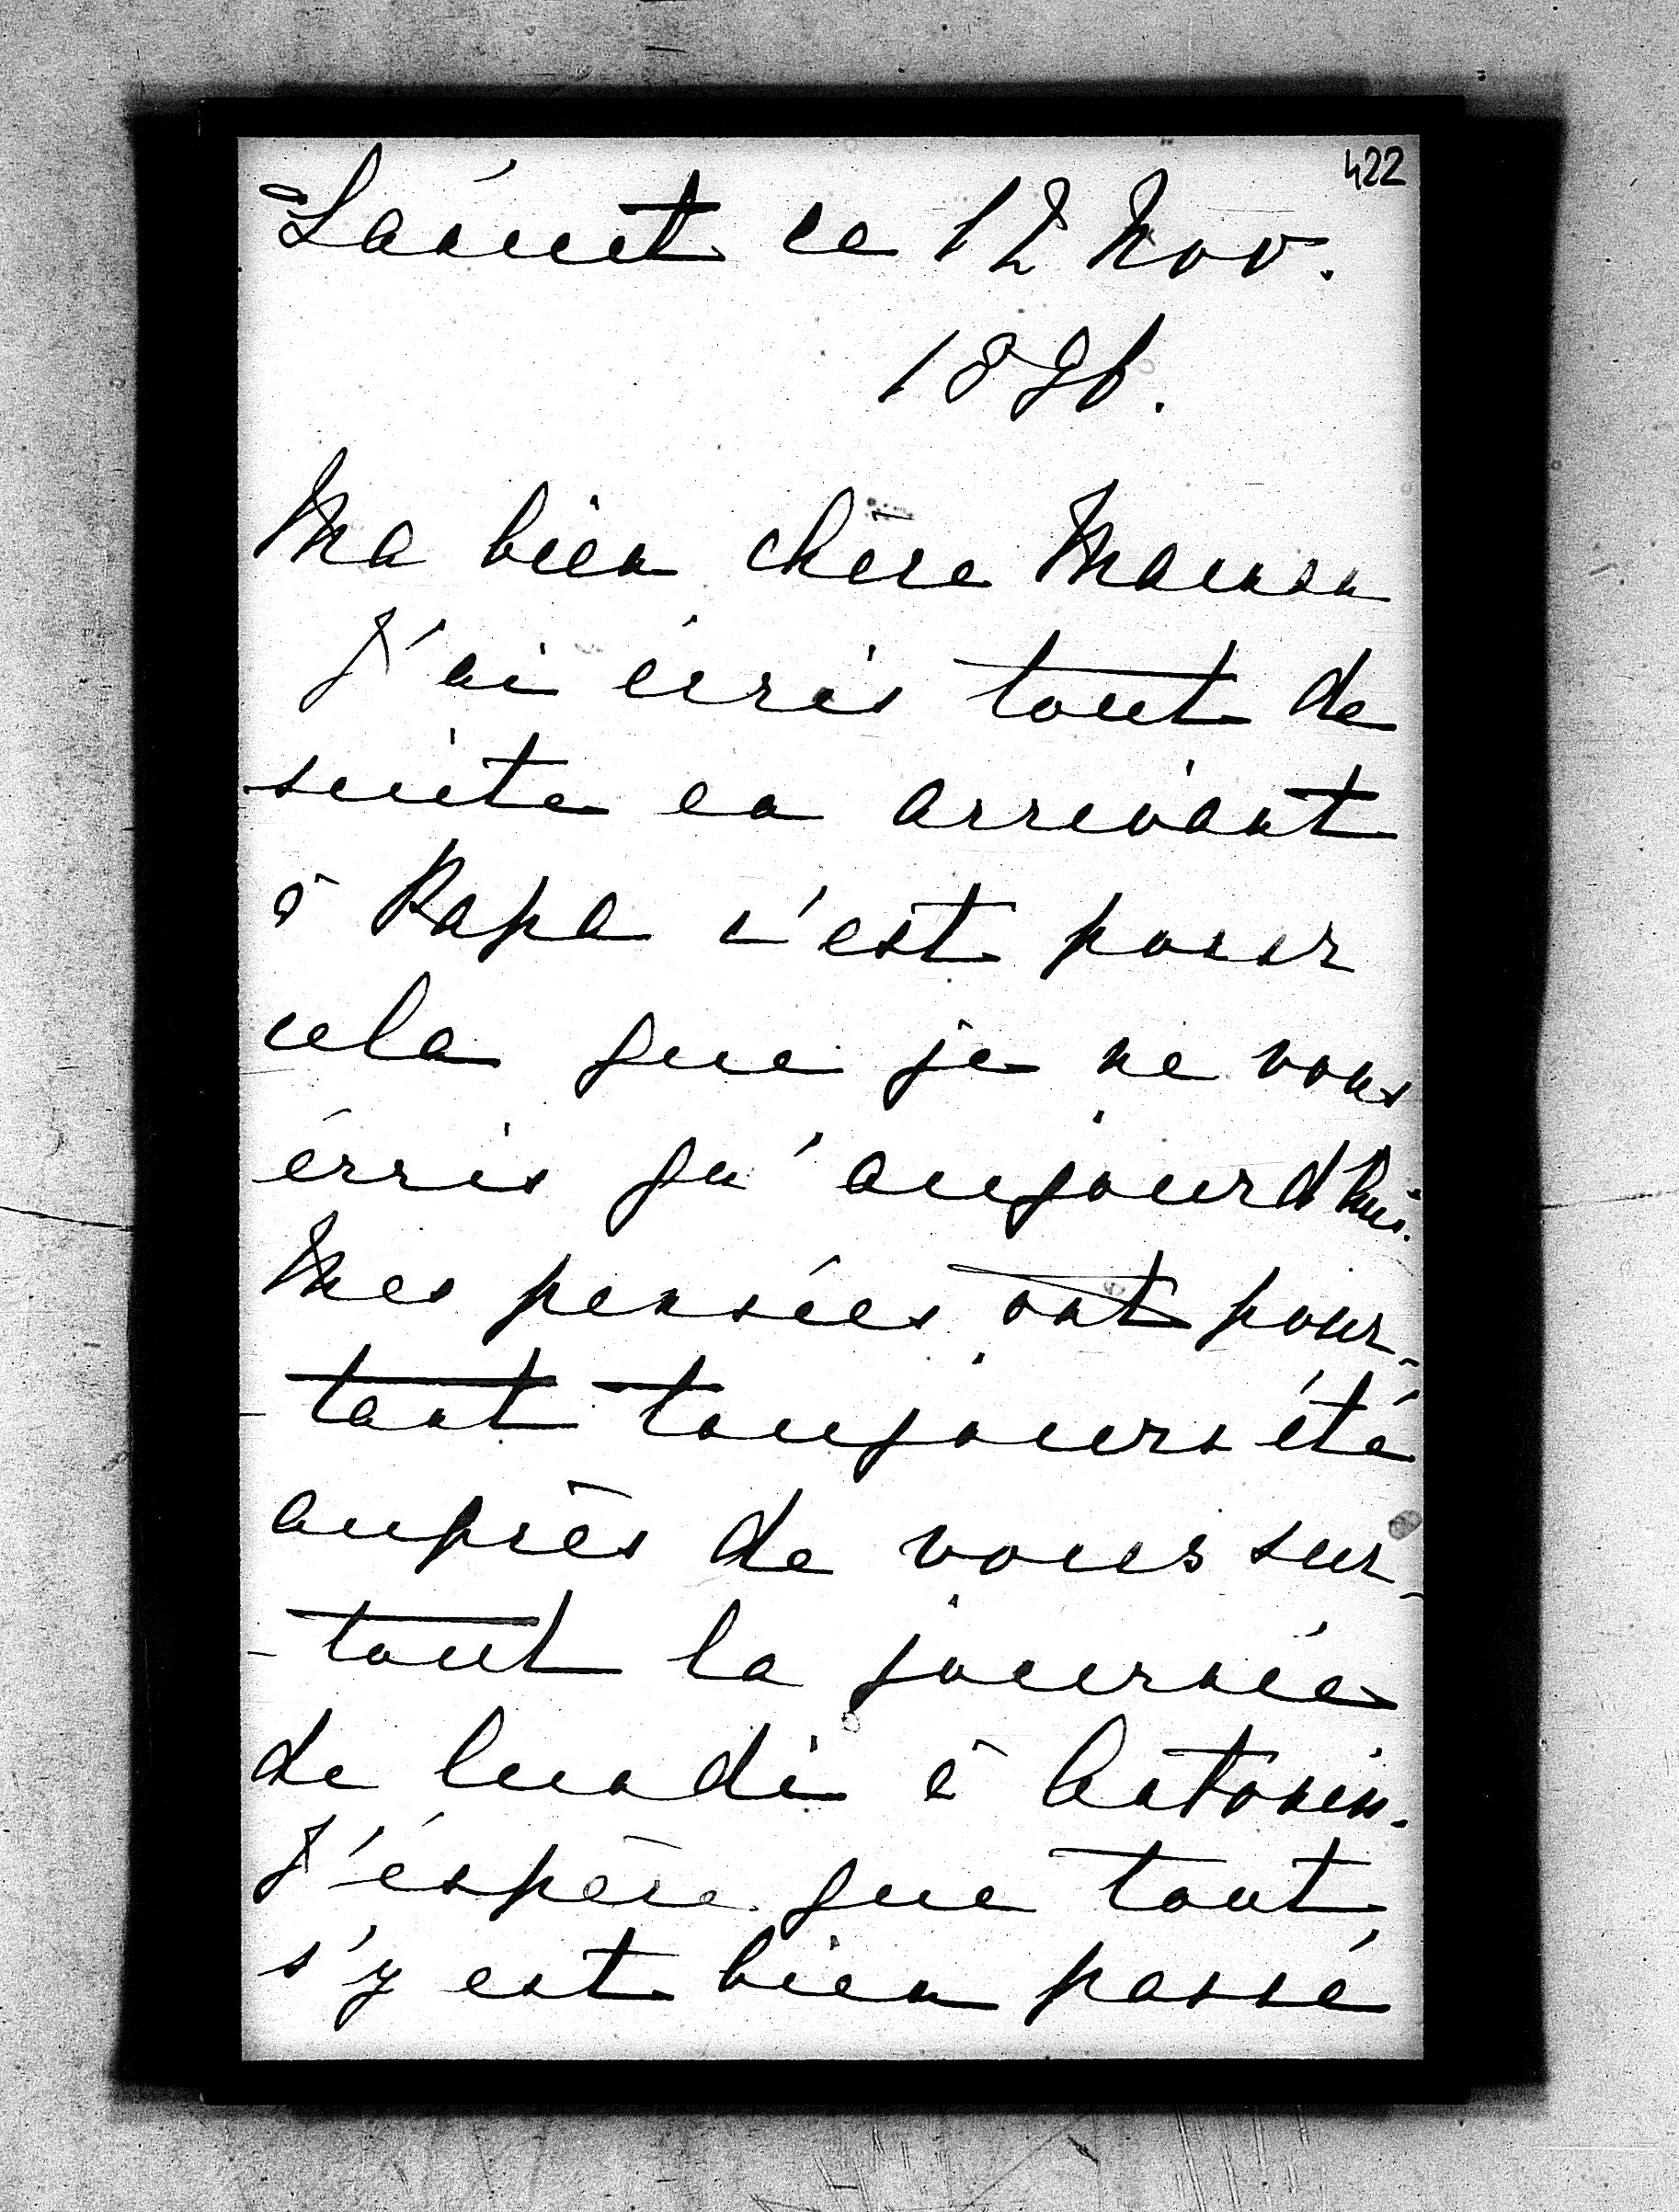 422
Lańcut ce 12 Nov.
1896.
Ma bien chère Maman
J'ai écris tout de
suite en arrivant
à Papa c'est pour
cela que je ne vous
écris qu'aujourd'hui.
Mes pensées ont pour-
-tant toujours été
auprès de vous sur-
-tout la journée
de lundi à Antonin.
J'éspère que tout
s'y est bien passé